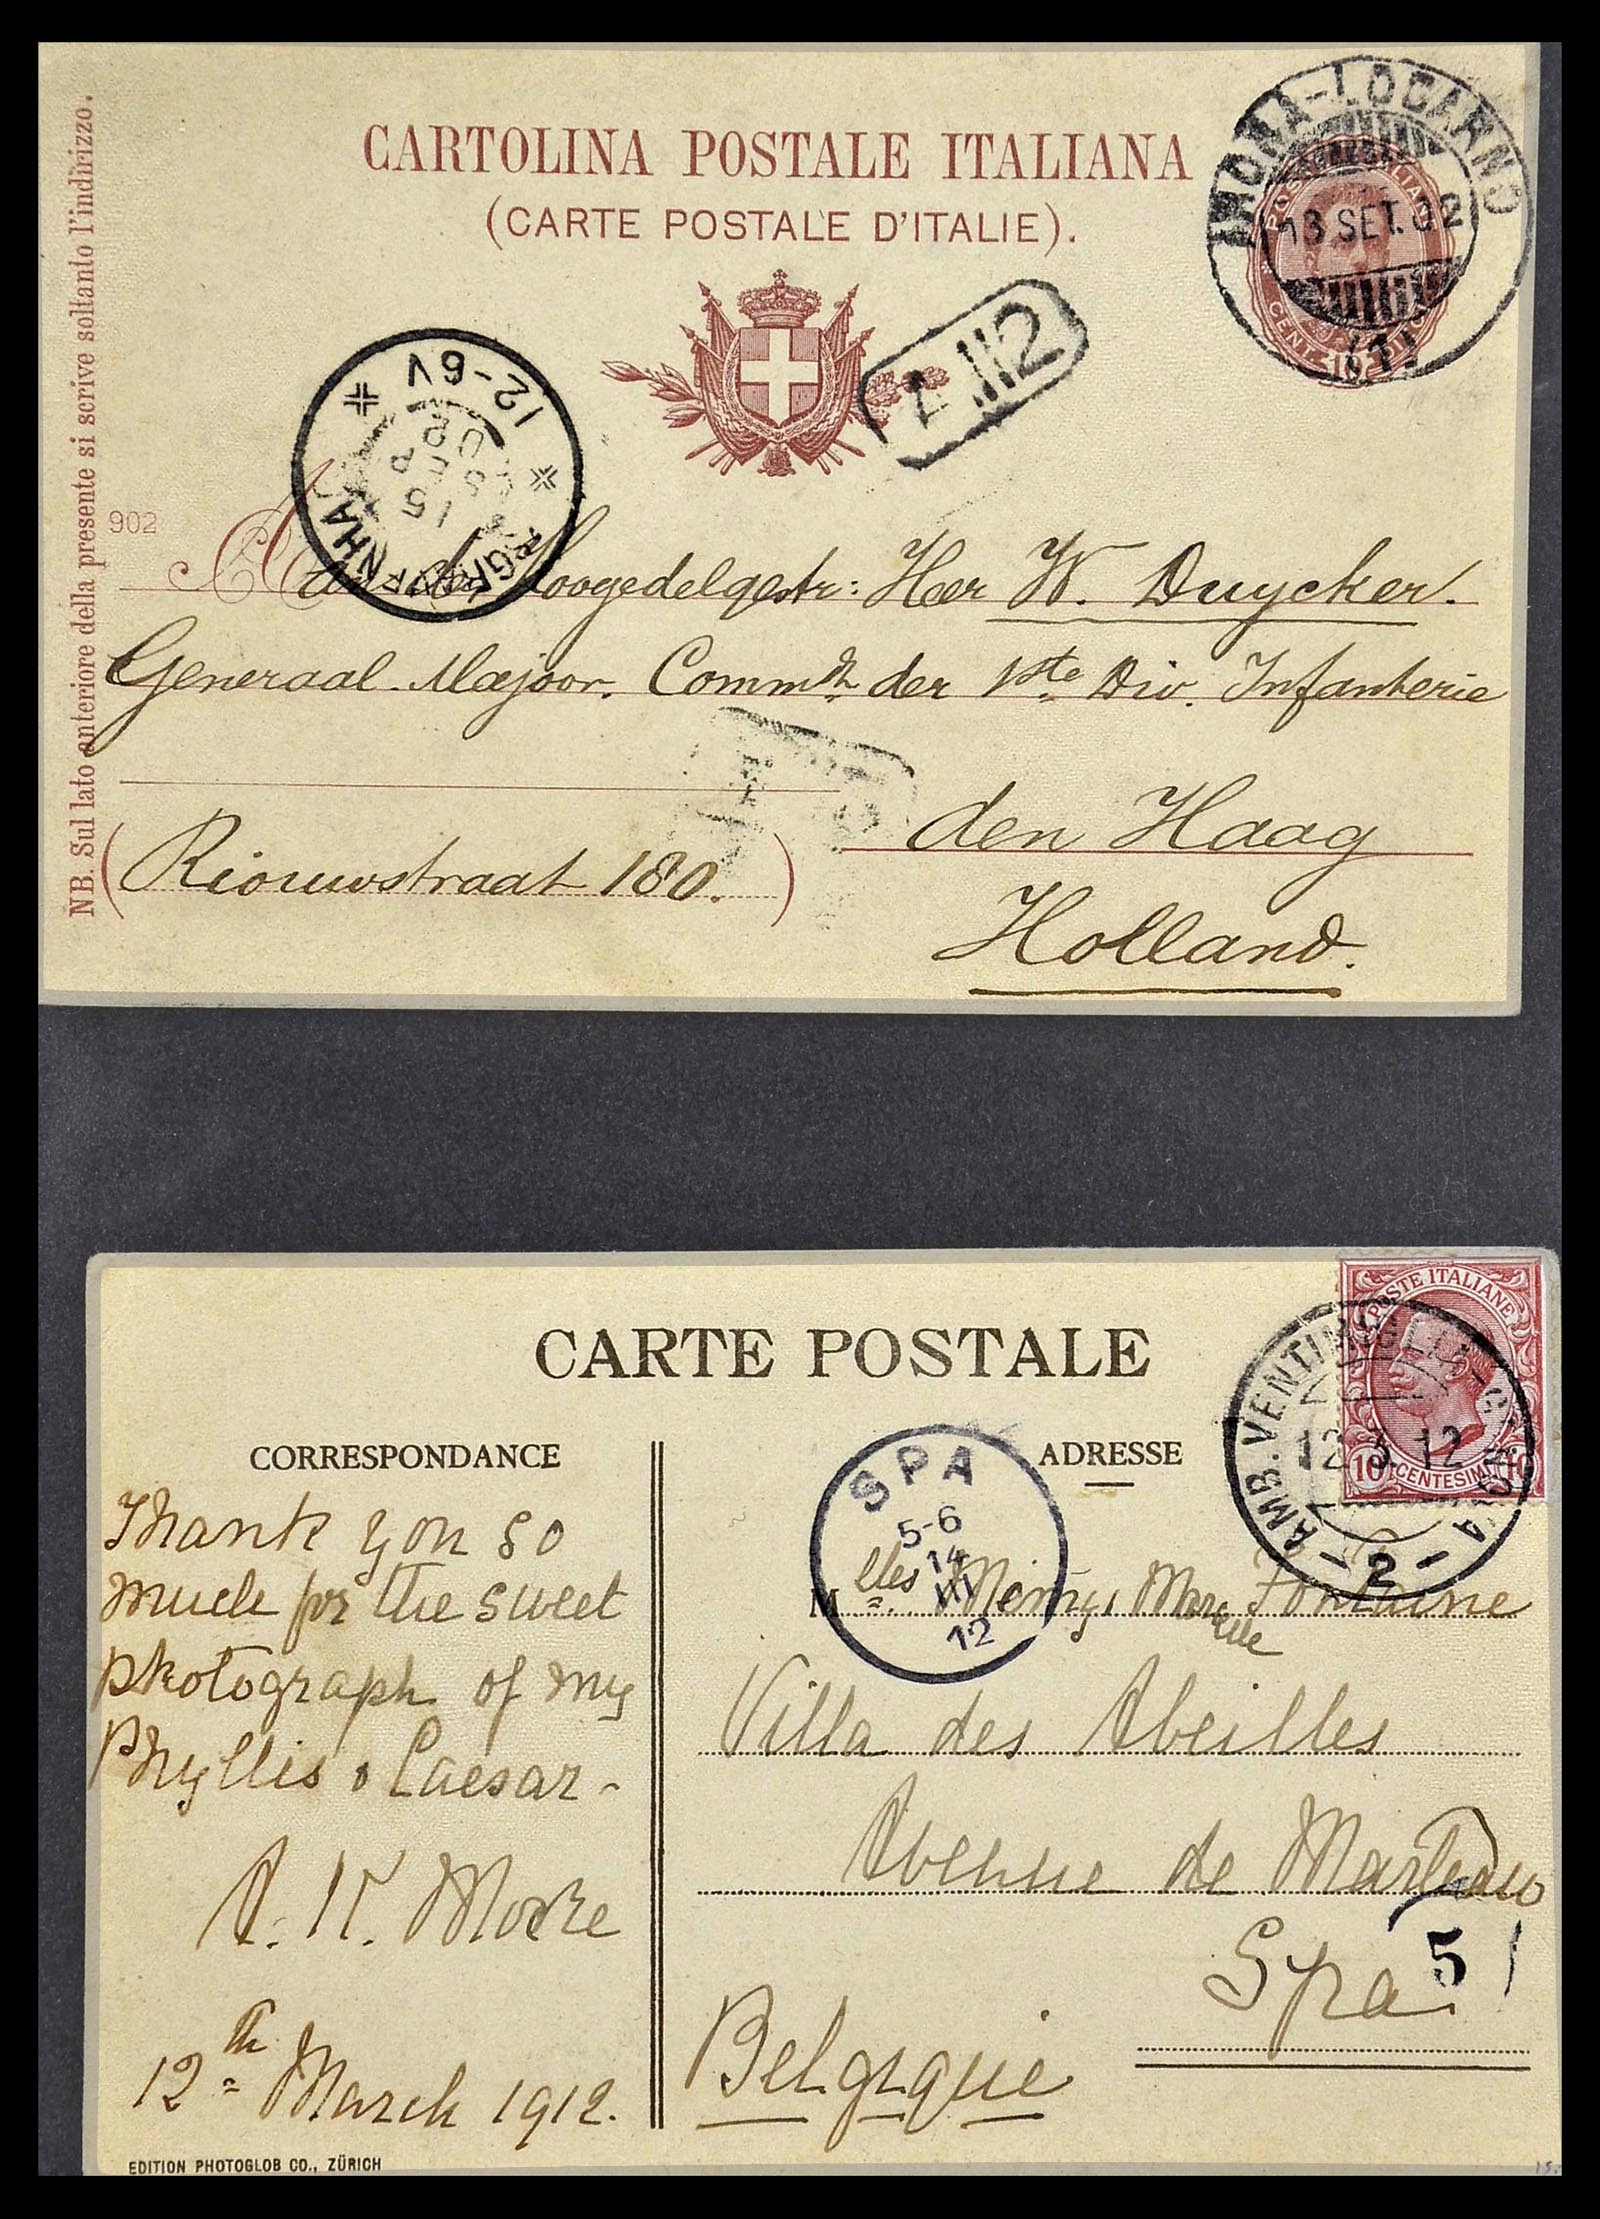 CARTOLINA POSTALE ITALIANA
(CARTE POSTALE D'ITALIE).
NB. Sul lato anteriore della presente si scrive soltanto l'indirizzo.
902
-LOCARNO
13 SET. 02
POSTE ITALIANE
CENT. 10
A 112
12-6V
15
SEP
02
GRAVENHA
Hoogedelgestr: Heer W. Duycker.
Generaal-Majoor. Commdt der 1ste Div. Infanterie
den Haag
(Riouwstraat 180.)
Holland.
CARTE POSTALE
POSTE ITALIANE
10 CENTESIMI 10
AMB. VENTIMIGLIA
12.3.12
2
CORRESPONDANCE
ADRESSE
SPA
5-6
14
III
12
Thank you so
much for the sweet
photograph of my
Phyllis & Caesar -
12th March 1912.
Mlles Fontaine
Villa des Abeilles
Avenue de Marteau
Spa
5
Belgique
EDITION PHOTOGLOB CO., ZÜRICH
15.